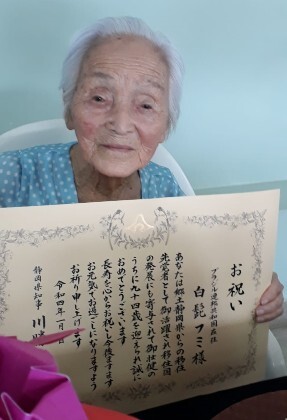 お祝い
ブラジル連邦共和国在住
白髭フミ様
あなたは郷土静岡県からの移住
先覚者として御活躍され移住国
の発展にも寄与されて御壮健の
うちに九十四歳を迎えられ誠に
おめでとうございます
長寿を心からお祝し今後ますます
お元気でお過ごしになりますよう
お祈り申し上げます
令和四年一月
静岡県知事 川勝